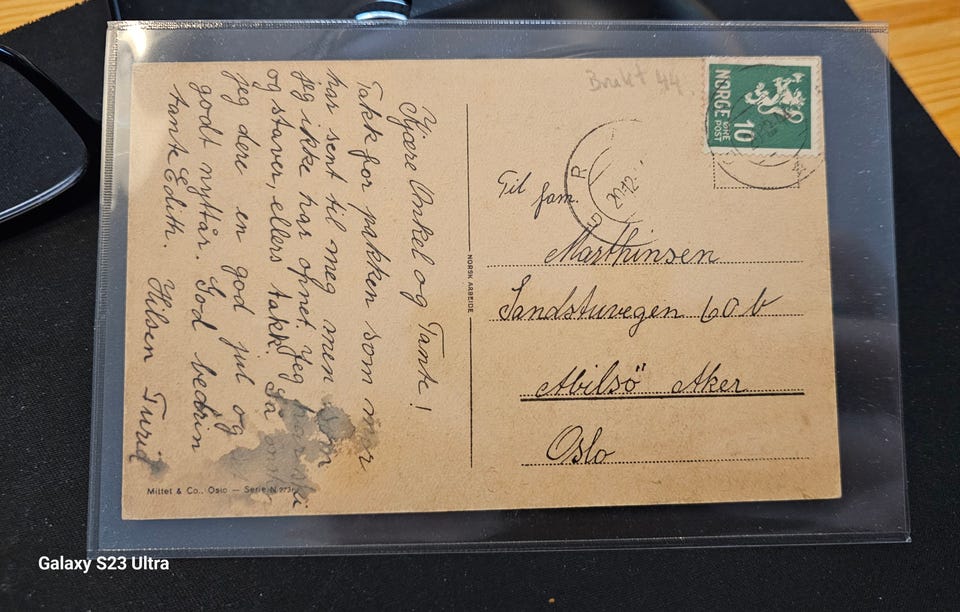 Kjære Onkel og Tante!
Takk for pakken som mor
har sent til meg men som
jeg ikke har åpnet. Jeg har ski
og staver, ellers takk. Så ønsker
jeg dere en god jul og
godt nyttår. God bedrin
tante Edith.
Hilsen Turid
Mittet & Co., Oslo — Serie N
NORSK ARBEIDE
Brukt 44.
NORGE
10
ØRE
POST
20.12
Til fam.
Marthinsen
Sandstuvegen 60 b
Abilsö Aker
Oslo
Galaxy S23 Ultra